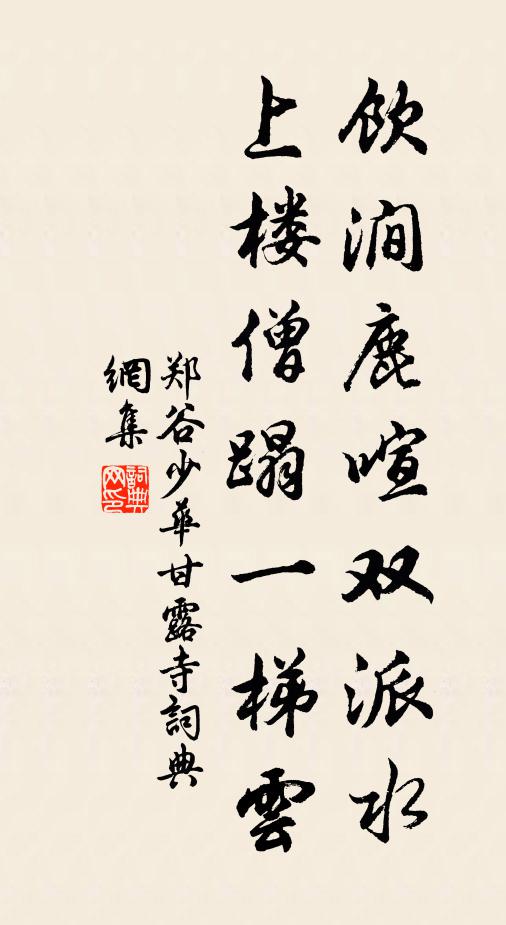 饮涧鹿喧双派水
上楼僧蹋一梯雲
郑谷少華甘露寺詞典
網集
詞典网印